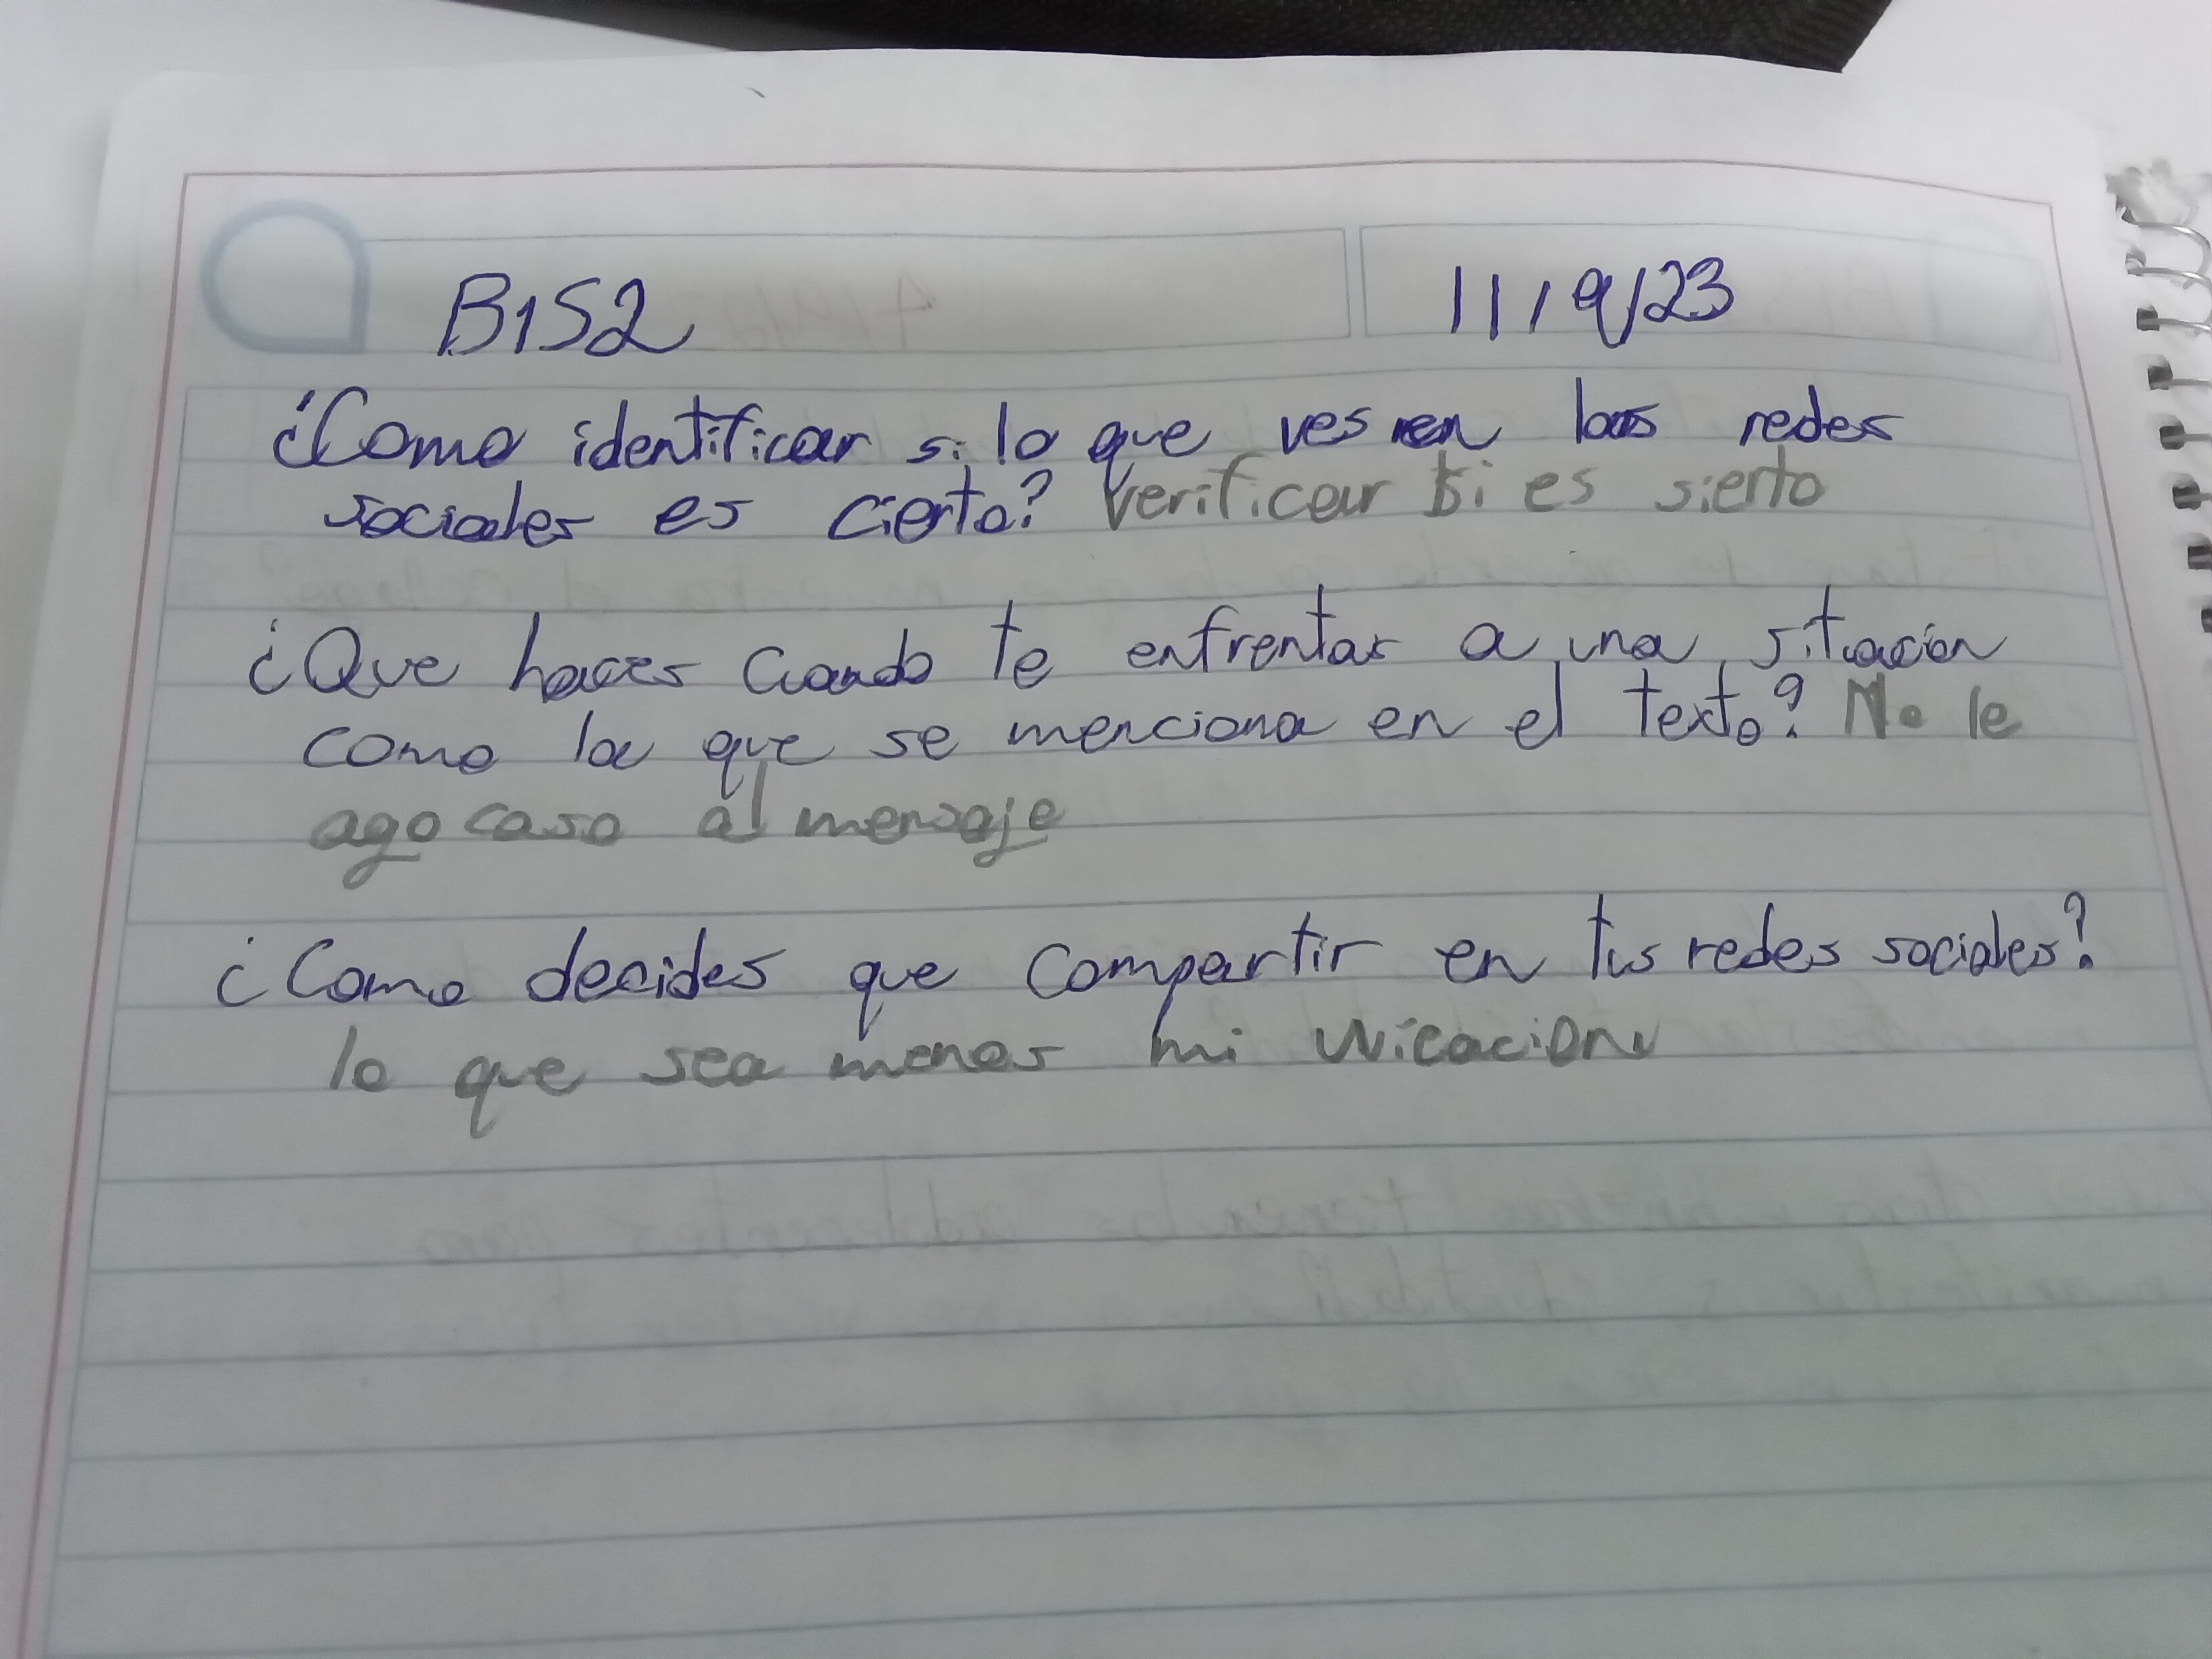 B1S2 11/9/23
¿Como identificar si lo que ves en las redes
sociales es cierto? Verificar si es sierto
¿Que haces cuando te enfrentas a una situacion
como la que se menciona en el texto? No le
ago caso al mensaje
¿Como decides que compartir en tus redes sociales?
lo que sea menos mi uvicacion